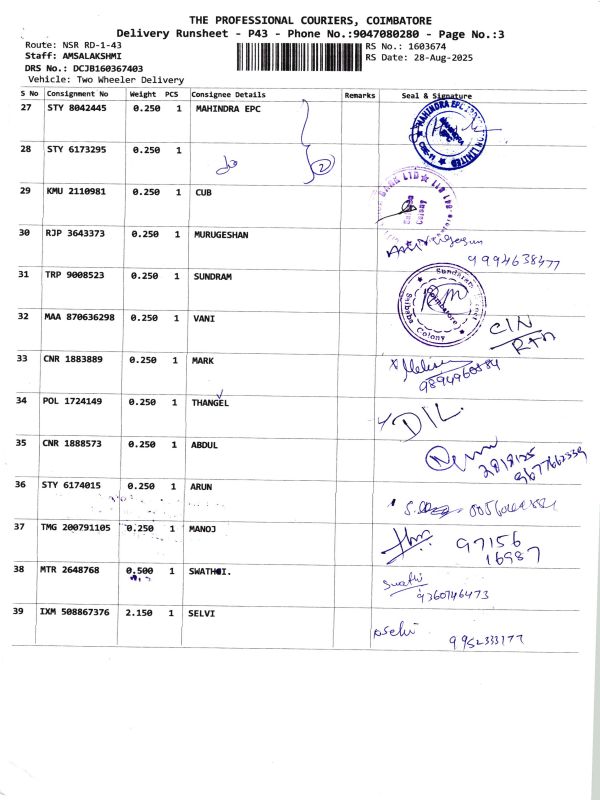 THE PROFESSIONAL COURIERS, COIMBATORE
Delivery Runsheet - P43 - Phone No.:9047080280 - Page No.:3
Route: NSR RD-1-43
RS No.: 1603674
Staff: AMSALAKSHMI
RS Date: 28-Aug-2025
DRS No.: DCJB160367403
Vehicle: Two Wheeler Delivery
S No Consignment No Weight PCS Consignee Details Remarks Seal & Signature
27 STY 8042445 0.250 1 MAHINDRA EPC
28 STY 6173295 0.250 1 do 2
29 KMU 2110981 0.250 1 CUB
Colony
30 RJP 3643373 0.250 1 MURUGESHAN
9994638477
31 TRP 9008523 0.250 1 SUNDRAM
Coimbatore
Saibaba Colony
32 MAA 870636298 0.250 1 VANI
33 CNR 1883889 0.250 1 MARK
34 POL 1724149 0.250 1 THANGEL
DIL.
35 CNR 1888573 0.250 1 ABDUL
36 STY 6174015 0.250 1 ARUN
37 TMG 200791105 0.250 1 MANOJ
97156
16987
38 MTR 2648768 0.500 1 SWATHI.
Swathi
9360746473
39 IXM 508867376 2.150 1 SELVI
9952333177